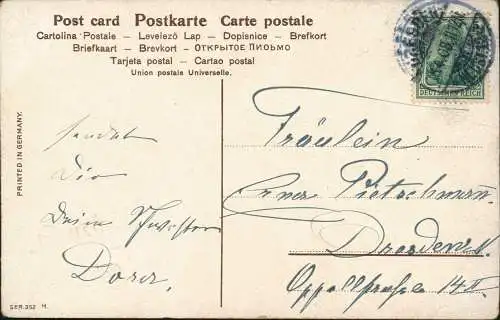 Post card Postkarte Carte postale
Cartolina Postale – Levelező Lap – Dopisnice – Brefkort
Briefkaart – Brevkort – ОТКРЫТОЕ ПИСЬМО
Tarjeta postal – Cartao postal
Union postale Universelle.
DEUTSCHES REICH
PRINTED IN GERMANY.
sendet
Dir
Deine Schwester
Dora.
Fräulein
Erna Pietschmann
Dresden A.
14 II
SER. 352 H.